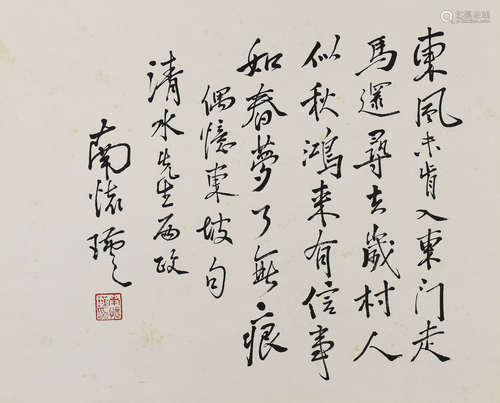 東風未肯入東门走
馬還尋去歲村人
似秋鴻来有信事
如春夢了無痕
偶憶東坡句
清水先生两政
南懷瑾